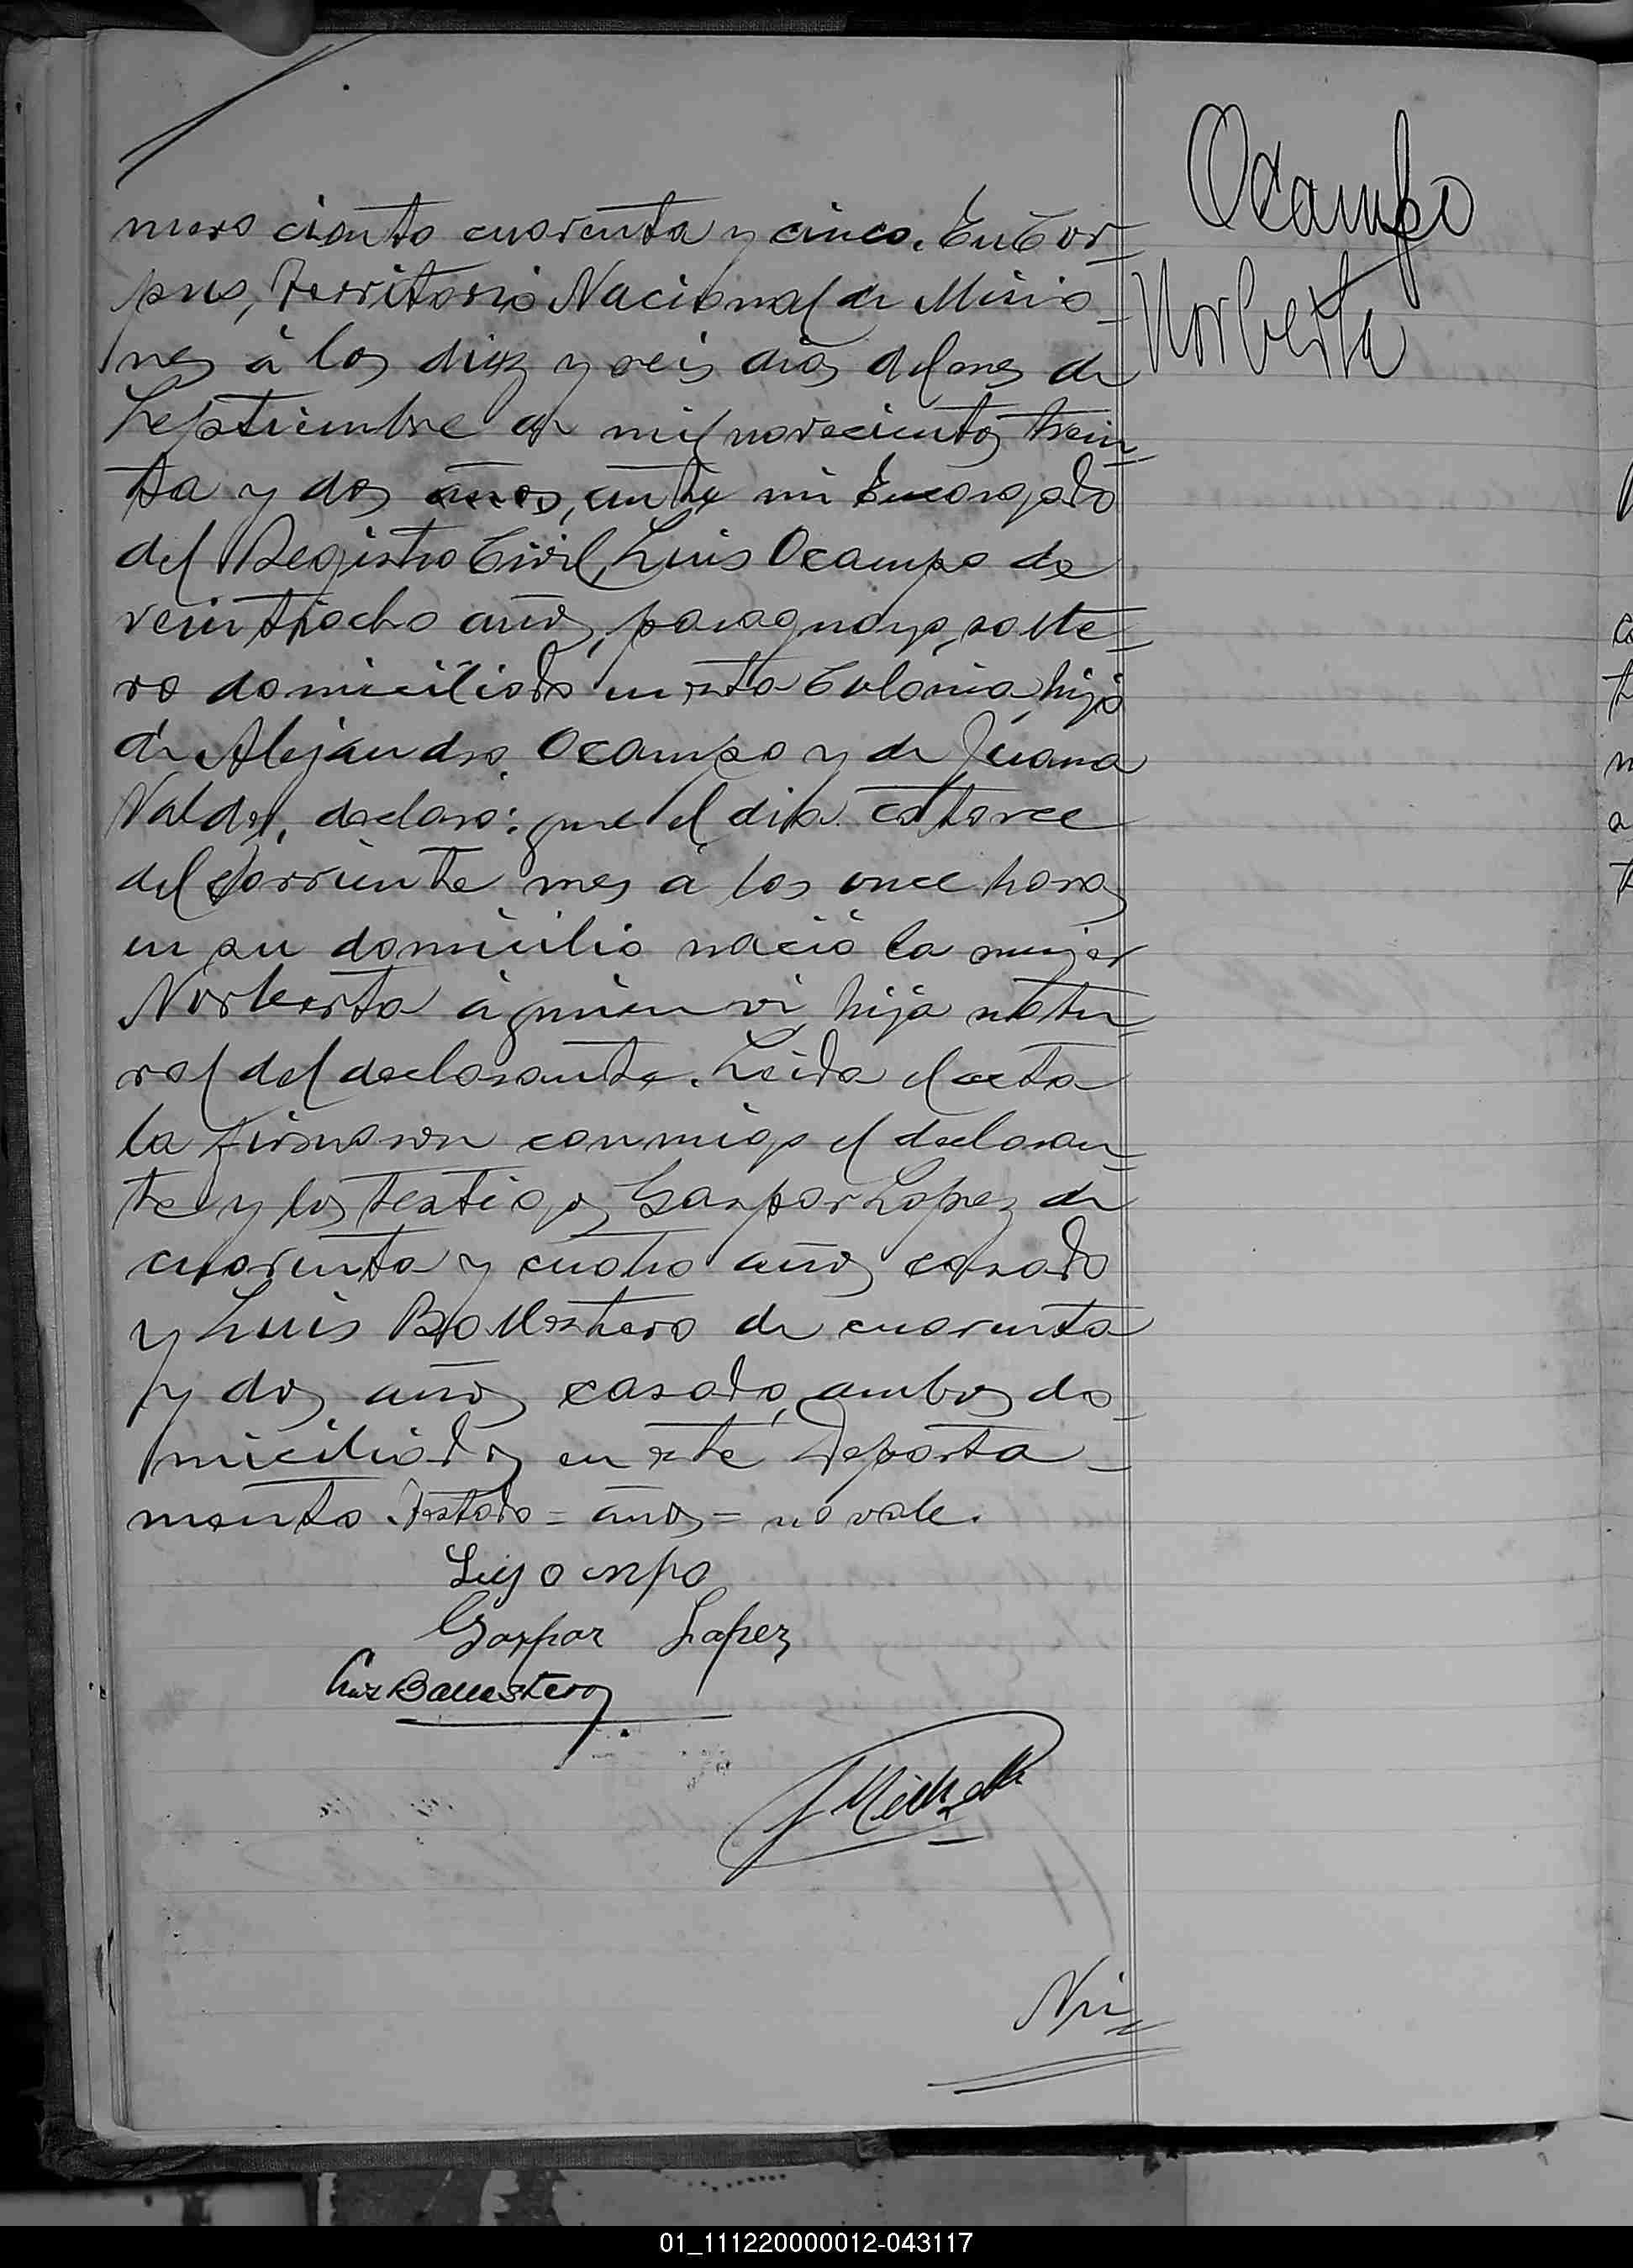 Ocampo
Norberta
mero ciento cuarenta y cinco. En Cor-
pus, Territorio Nacional de Misio-
nes á los diez y seis dias del mes de
Septiembre de mil novecientos trein-
ta y dos años, ante mi Encargado
del Registro Civil, Luis Ocampo de
veintiocho años, paraguayo, solte-
ro domiciliado en esta Colonia, hijo
de Alejandro Ocampo y de Juana
Valdez, declaro: que el dia catorce
del corriente mes á las once horas
en su domicilio nació la mujer
Norberta á quien vi, hija natu-
ral del declarante. Leida el acta
la firmaron conmigo el declaran-
te y los testigos Gaspar Lopez de
cuarenta y cuatro años casado
y Luis Ballestero de cuarenta
y dos años casado, ambos do-
miciliados en este Departa-
mento. Testado = años = no vale.
Gaspar Lopez
Luis Ballesteros
01_111220000012-043117